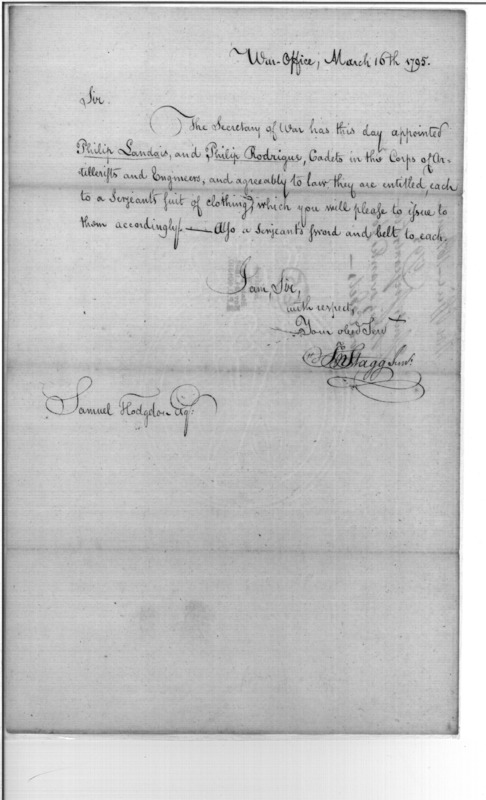 War-Office, March 16th 1795.
Sir
The Secretary of War has this day appointed
Philip Landais, and Philip Rodrigue, Cadets in the Corps of Ar-
tillerists and Engineers, and agreeably to law they are entitled, each
to a Serjeants suit of clothing, which you will please to issue to
them accordingly. — Also a serjeants sword and belt to each.
I am, Sir,
with respect,
Your obed Servt
Jno Stagg Junr.
Samuel Hodgdon Esqr.